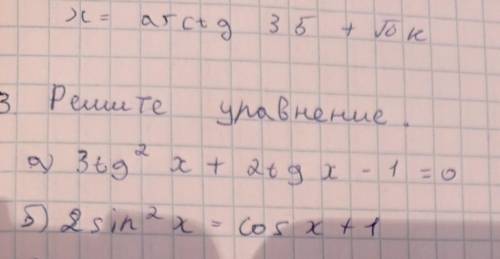 x = arctg 35 + √Ю к
3. Решите уравнение.
а) 3tg² x + 2tg x - 1 = 0
б) 2 sin² x = cos x + 1